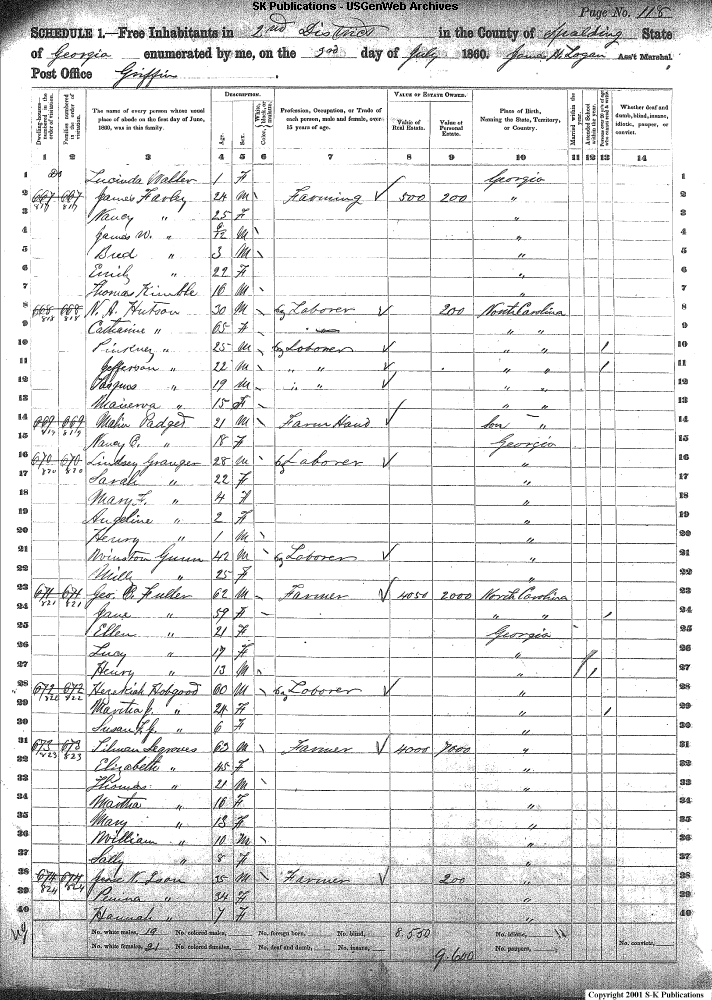 SK Publications - USGenWeb Archives
Page No. 118
SCHEDULE 1.—Free Inhabitants in 2nd District in the County of Spalding State
of Georgia enumerated by me, on the 3rd day of July 1860. James H. Logan Ass't Marshal.
Post Office Griffin
Dwelling-houses—numbered in the order of visitation.
Families numbered in the order of visitation.
The name of every person whose usual place of abode on the first day of June, 1860, was in this family.
DESCRIPTION.
Age.
Sex.
Color, White, black, or mulatto.
Profession, Occupation, or Trade of each person, male and female, over 15 years of age.
VALUE OF ESTATE OWNED.
Value of Real Estate.
Value of Personal Estate.
Place of Birth, Naming the State, Territory, or Country.
Married within the year.
Attended School within the year.
Whether deaf and dumb, blind, insane, idiotic, pauper, or convict.
1 2 3 4 5 6 7 8 9 10 11 12 13 14
1 Lucinda Waller 1 F Georgia 1
2 667 667 James Farley 24 M Farming 500 200 " 2
3 Nancy " 25 F " 3
4 James W. " 9/12 M " 4
5 Bud " 3 M " 5
6 Emily " 22 F " 6
7 Thomas Kimble 16 M " 7
8 668 668 N. A. Hutson 30 M Laborer 200 North Carolina 8
9 Catharine " 65 F " " 9
10 Pinkney " 25 M Laborer " " 10
11 Jefferson " 22 M " " " " 11
12 " 19 M " " " " 12
13 Manerva " 15 F " " 13
14 669 669 Padget 21 M Farm Hand " 14
15 Nancy E. " 18 F Georgia 15
16 670 670 Lindsey Granger 28 M Laborer " 16
17 Sarah " 22 F " 17
18 Mary F. " 4 F " 18
19 Angeline " 2 F " 19
20 Henry " 1 M " 20
21 Winston Gunn 42 M Laborer " 21
22 Mille " 25 F " 22
23 671 671 Geo. P. Fuller 62 M Farmer 4050 2000 North Carolina 23
24 Jane " 59 F " " 24
25 Ellen " 21 F Georgia 25
26 Lucy " 17 F " 26
27 Henry " 13 M " 27
28 672 672 Hezekiah Hobgood 60 M Laborer " 28
29 Martha J. " 24 F " 29
30 Susan F. J. " 6 F " 30
31 673 673 Tilman Segroves 63 M Farmer 4000 7000 " 31
32 Elizabeth " 45 F " 32
33 Thomas " 21 M " 33
34 Martha " 16 F " 34
35 Mary " 13 F " 35
36 William " 10 M " 36
37 Sally " 8 F " 37
38 674 674 Jesse N. Ison 35 M Farmer 200 " 38
39 Penina " 34 F " 39
40 Hannah " 7 F " 40
No. white males, 19 No. colored males, No. foreign born, No. blind, 8.550 No. idiotic,
No. white females, 21 No. colored females, No. deaf and dumb, No. insane, 9.600 No. paupers, No. convicts,
Copyright 2001 S-K Publications